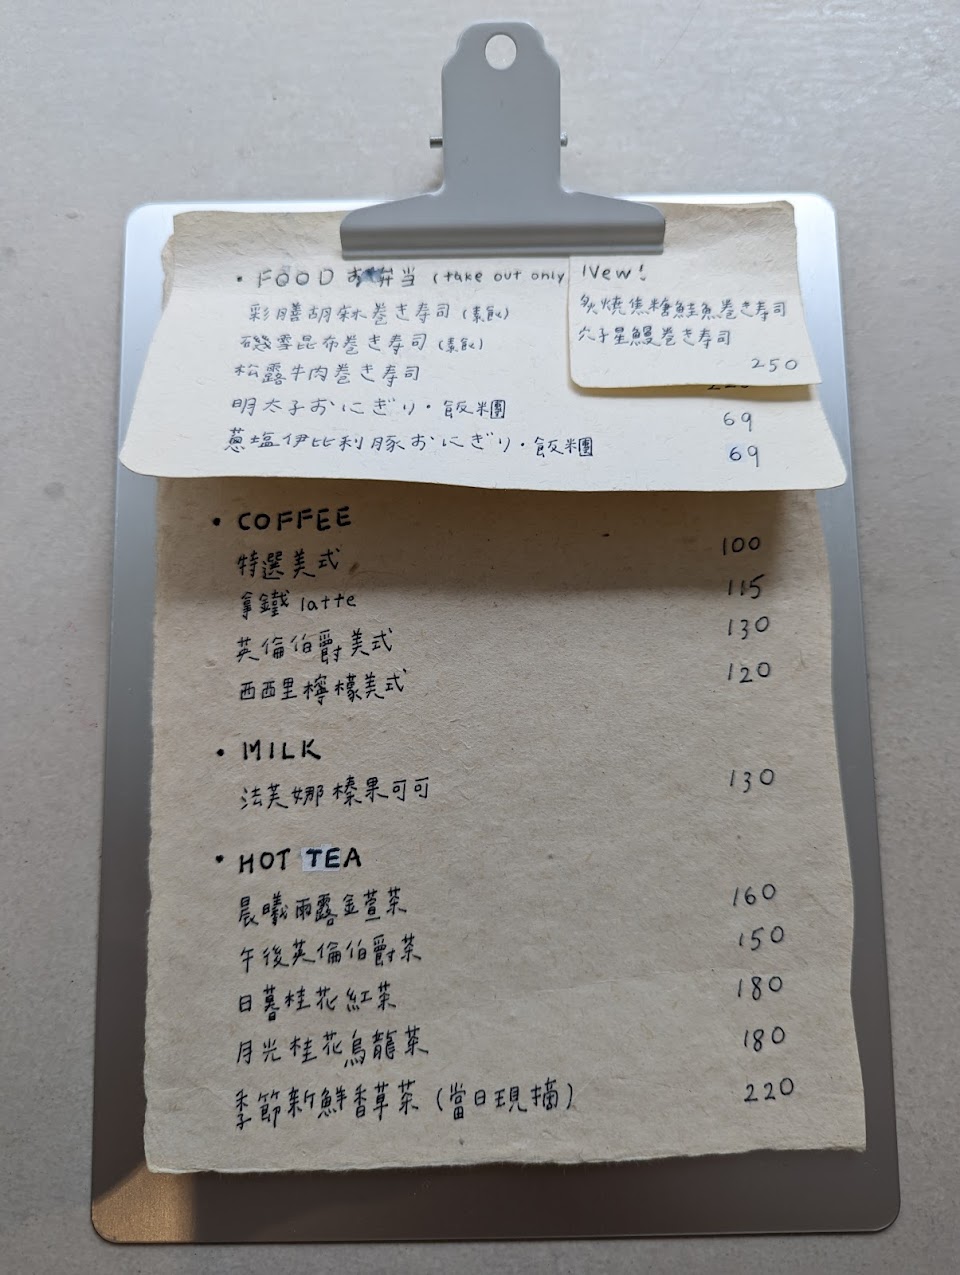 • FOOD お弁当 (take out only
彩膳胡麻巻き寿司 (素飯)
磯雪昆布巻き寿司 (素飯)
松露牛肉巻き寿司
明太子おにぎり・飯糰 69
蔥塩伊比利豚おにぎり・飯糰 69
New!
炙燒焦糖鮭魚巻き寿司
穴子星鰻巻き寿司
250
• COFFEE
特選美式 100
拿鐵 latte 115
英倫伯爵美式 130
西西里檸檬美式 120
• MILK
法芙娜榛果可可 130
• HOT TEA
晨曦雨露金萱茶 160
午後英倫伯爵茶 150
日暮桂花紅茶 180
月光桂花烏龍茶 180
季節新鮮香草茶 (當日現摘) 220